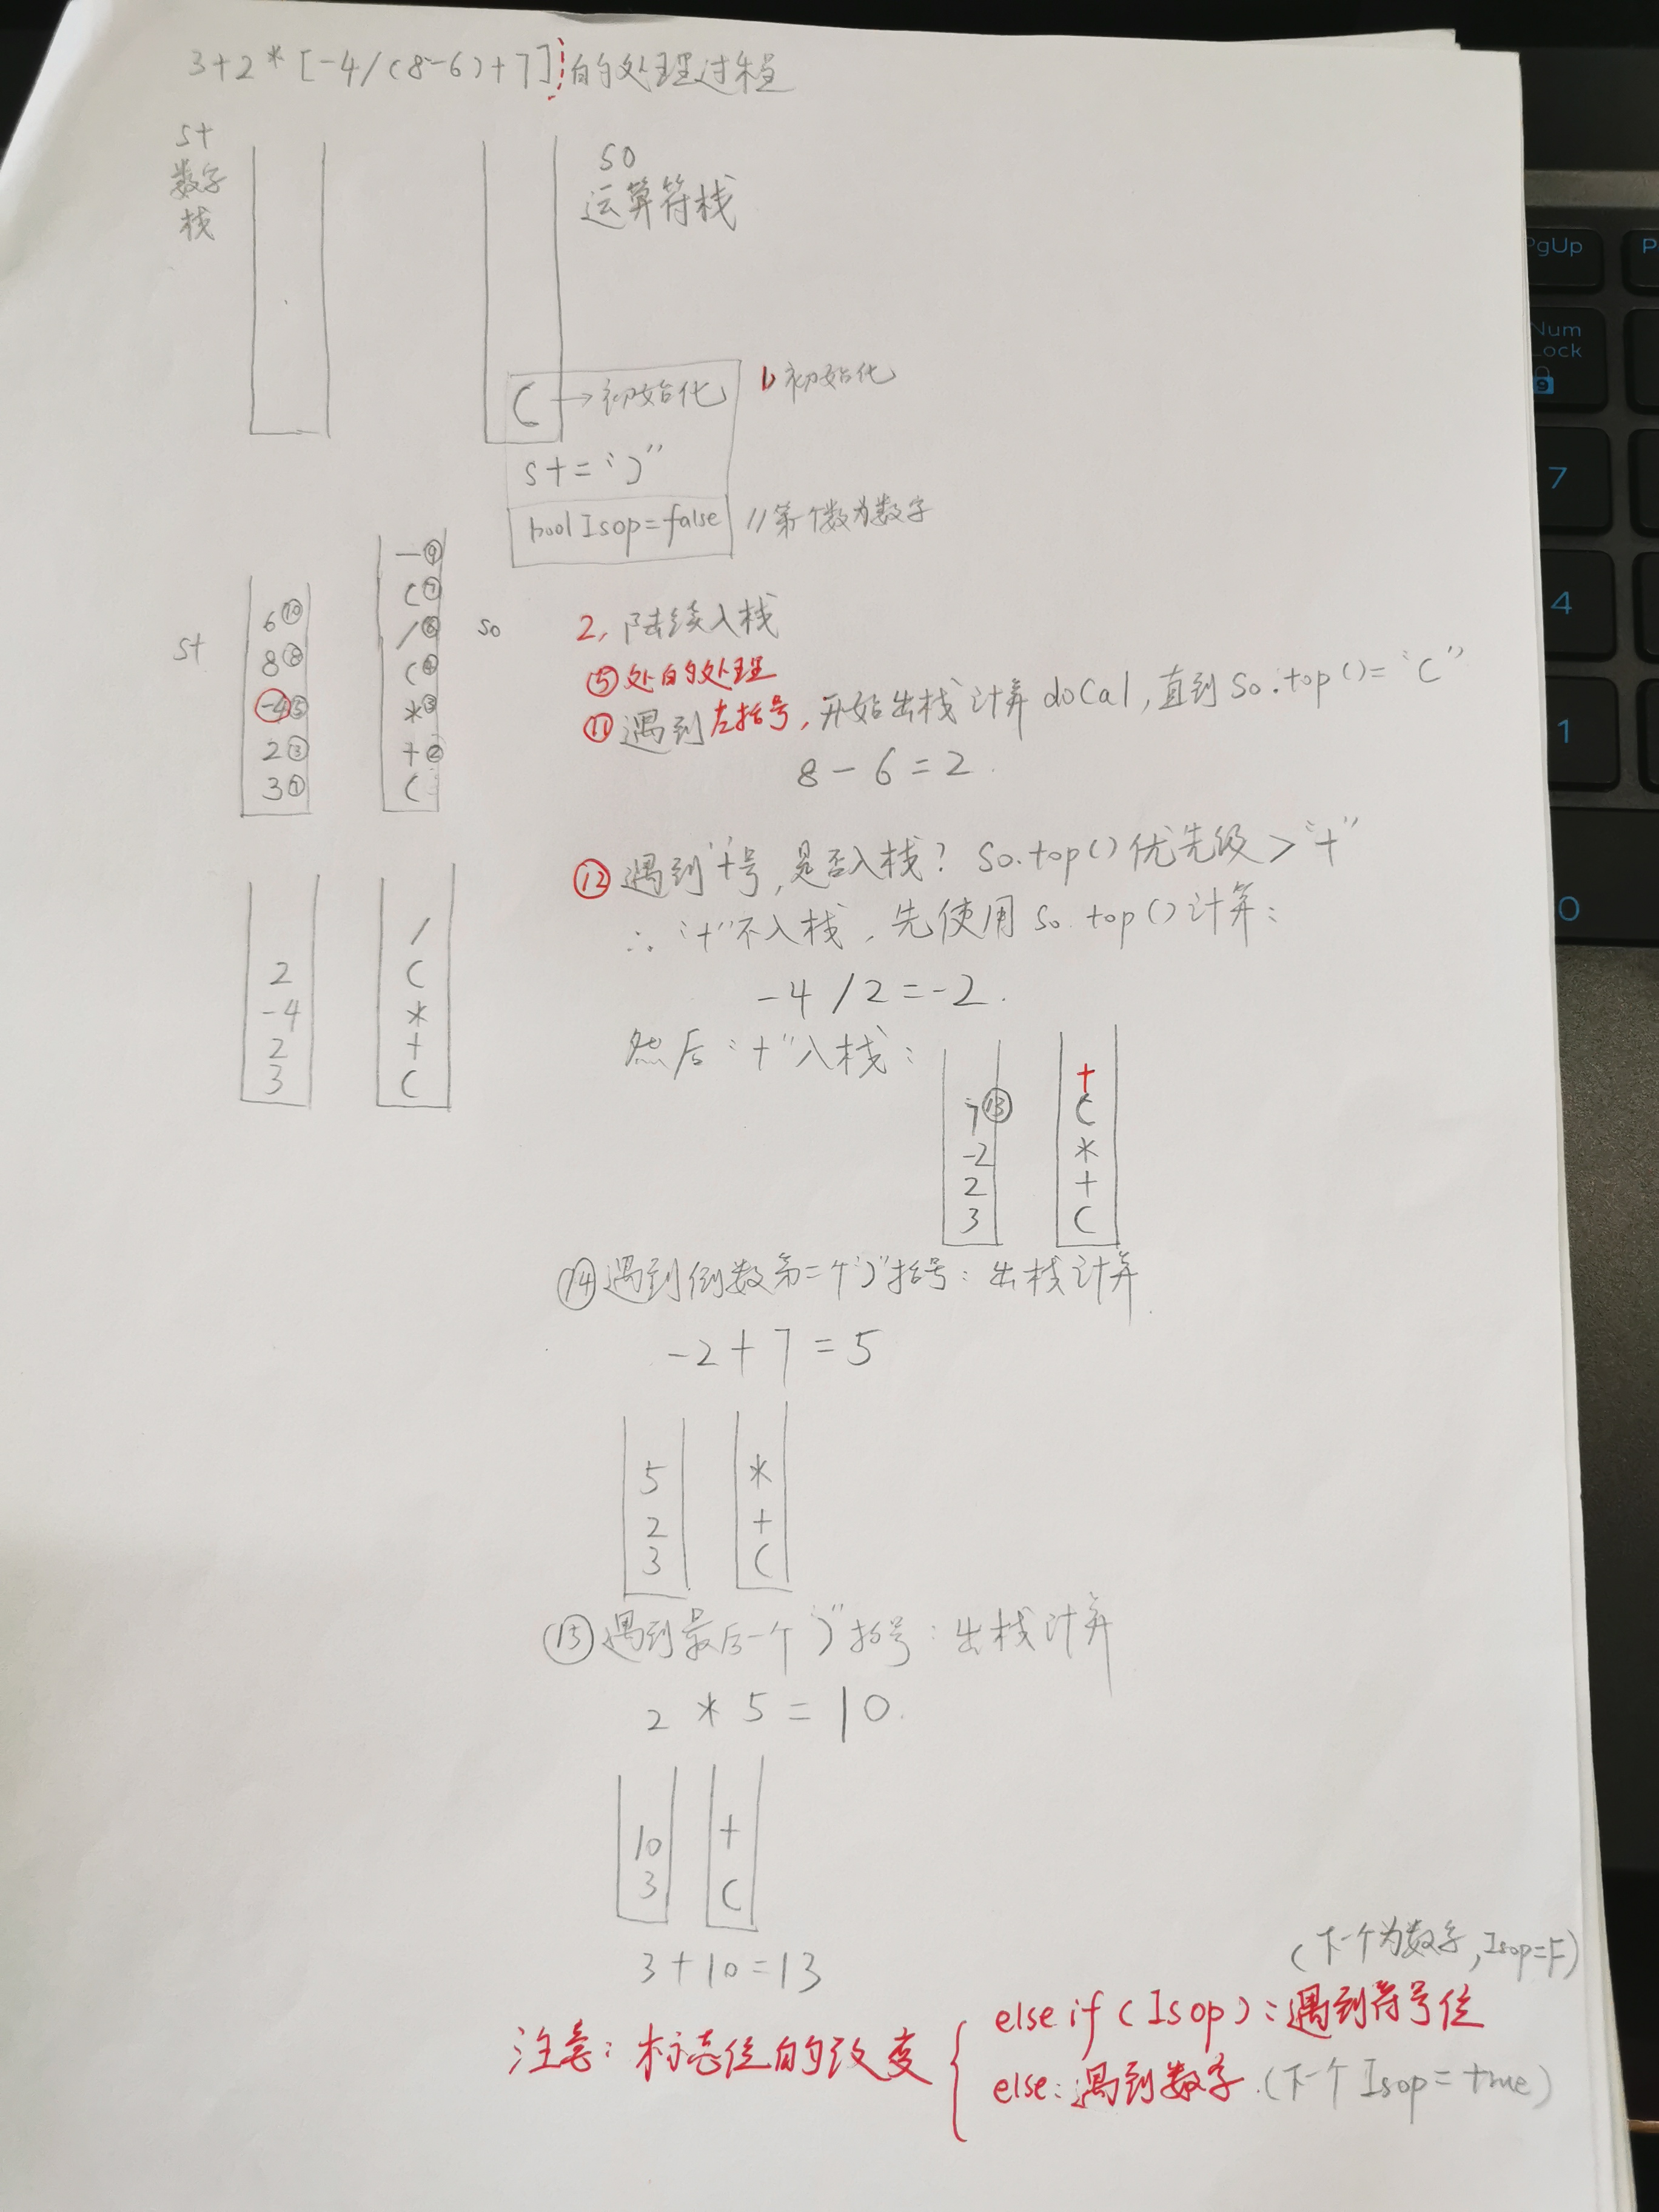 3+2*[-4/(8-6)+7]的处理过程
st
数字
栈
so
运算符栈
( →初始化
1)初始化
st=")"
bool Isop=false
//第一个数为数字
st
6⑩
8⑧
-4⑤
2③
3①
-⑨
(⑦
/⑥
(④
*③
+②
(
so
2, 陆续入栈
⑤处的处理
⑪遇到左括号,开始出栈计算doCal,直到so.top()="("
8-6=2
⑫遇到"+"号,是否入栈?so.top()优先级>"+"
∴"+"不入栈,先使用so.top()计算:
-4/2=-2.
然后"+"入栈:
2
-4
2
3
/
(
*
+
(
7⑬
-2
2
3
+
(
*
+
(
⑭遇到倒数第二个")"括号:出栈计算
-2+7=5
5
2
3
*
+
(
⑮遇到最后一个")"括号:出栈计算
2*5=10.
10
3
+
(
3+10=13
(下一个为数字,Isop=F)
注意:标志位的改变
else if(Isop):遇到符号位
else:遇到数字.(下个Isop=true)
PgUp
P
Num
Lock
9
7
4
1
0